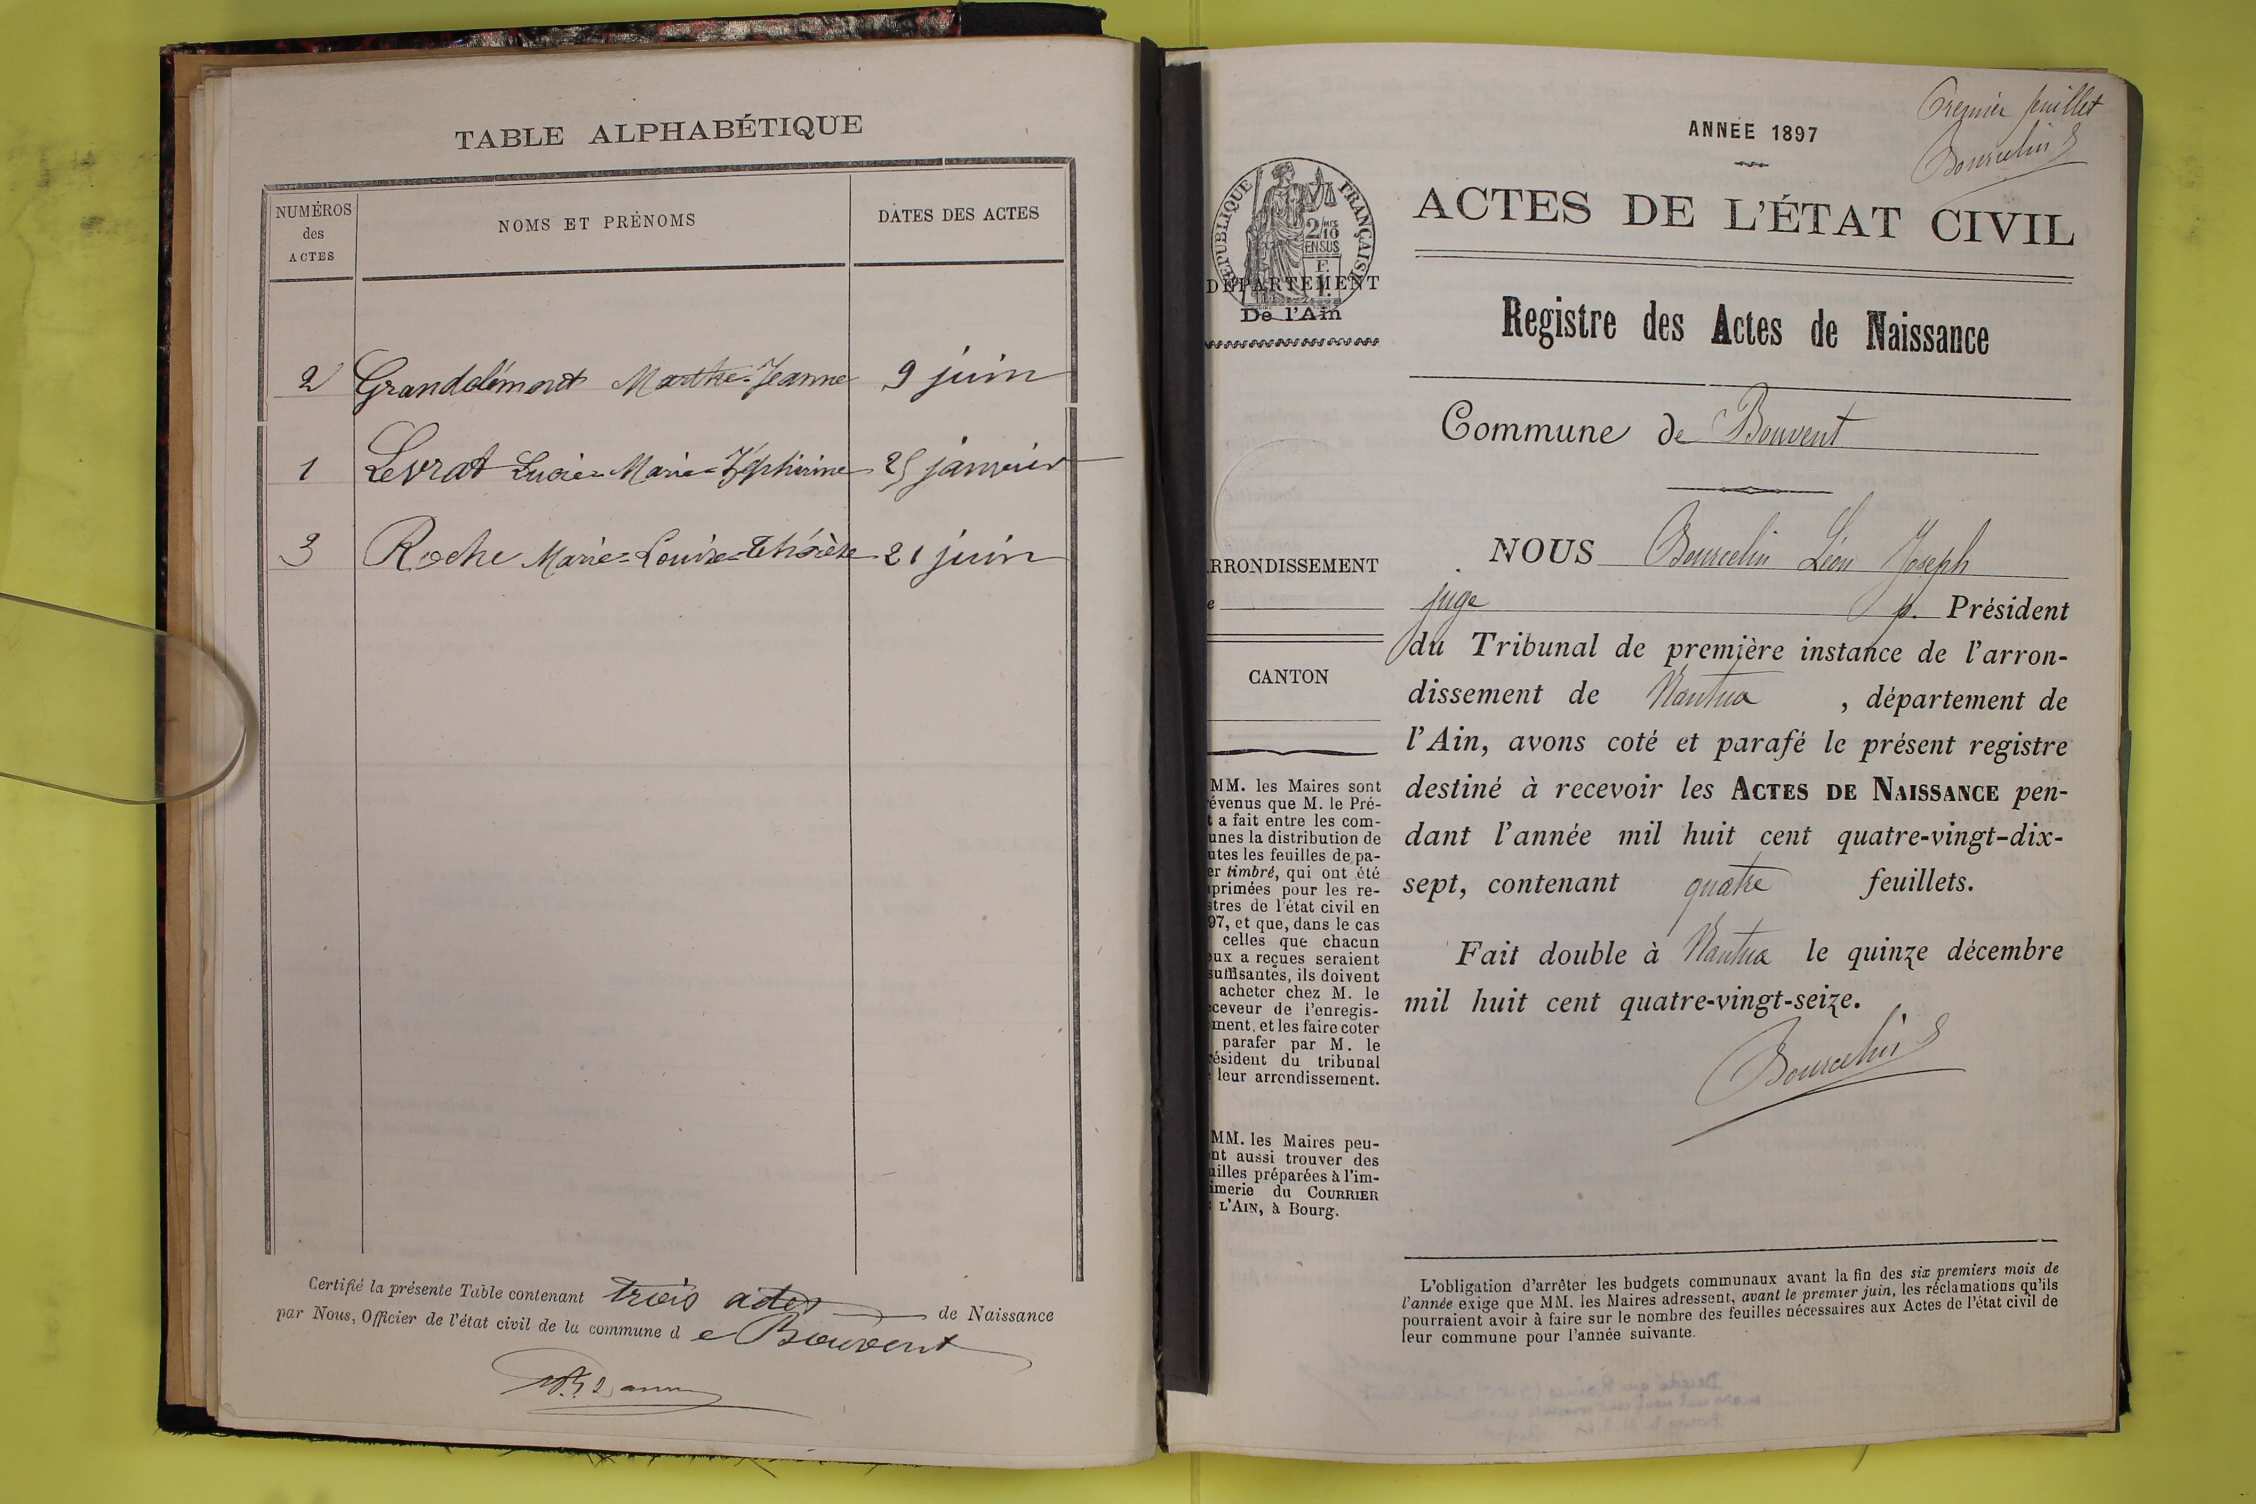 TABLE ALPHABÉTIQUE
NUMÉROS
des
ACTES
NOMS ET PRÉNOMS
DATES DES ACTES
2 Grandclément Marthe-Jeanne 9 juin
1 Levrat Lucie-Marie-Zéphirine 25 janvier
3 Roche Marie-Louise-Thérèse 21 juin
Certifié la présente Table contenant trois actes de Naissance
par Nous, Officier de l'état civil de la commune d e Bouvent
Premier feuillet
Bourcelin
ANNÉE 1897
RÉPUBLIQUE FRANÇAISE
2/10
EN SUS
DÉPARTEMENT
De l'Ain
ACTES DE L'ÉTAT CIVIL
Registre des Actes de Naissance
Commune de Bouvent
RRONDISSEMENT
e
CANTON
MM. les Maires sont
évenus que M. le Pré-
t a fait entre les com-
unes la distribution de
utes les feuilles de pa-
er timbré, qui ont été
primées pour les re-
stres de l'état civil en
97, et que, dans le cas
celles que chacun
eux a reçues seraient
suffisantes, ils doivent
acheter chez M. le
ceveur de l'enregis-
ment, et les faire coter
parafer par M. le
résident du tribunal
leur arrondissement.
MM. les Maires peu-
nt aussi trouver des
uilles préparées à l'im-
imerie du COURRIER
L'AIN, à Bourg.
NOUS Bourcelin Léon Joseph
juge p. Président
du Tribunal de première instance de l'arron-
dissement de Nantua , département de
l'Ain, avons coté et parafé le présent registre
destiné à recevoir les ACTES DE NAISSANCE pen-
dant l'année mil huit cent quatre-vingt-dix-
sept, contenant quatre feuillets.
Fait double à Nantua le quinze décembre
mil huit cent quatre-vingt-seize.
Bourcelin
L'obligation d'arrêter les budgets communaux avant la fin des six premiers mois de
l'année exige que MM. les Maires adressent, avant le premier juin, les réclamations qu'ils
pourraient avoir à faire sur le nombre des feuilles nécessaires aux Actes de l'état civil de
leur commune pour l'année suivante.